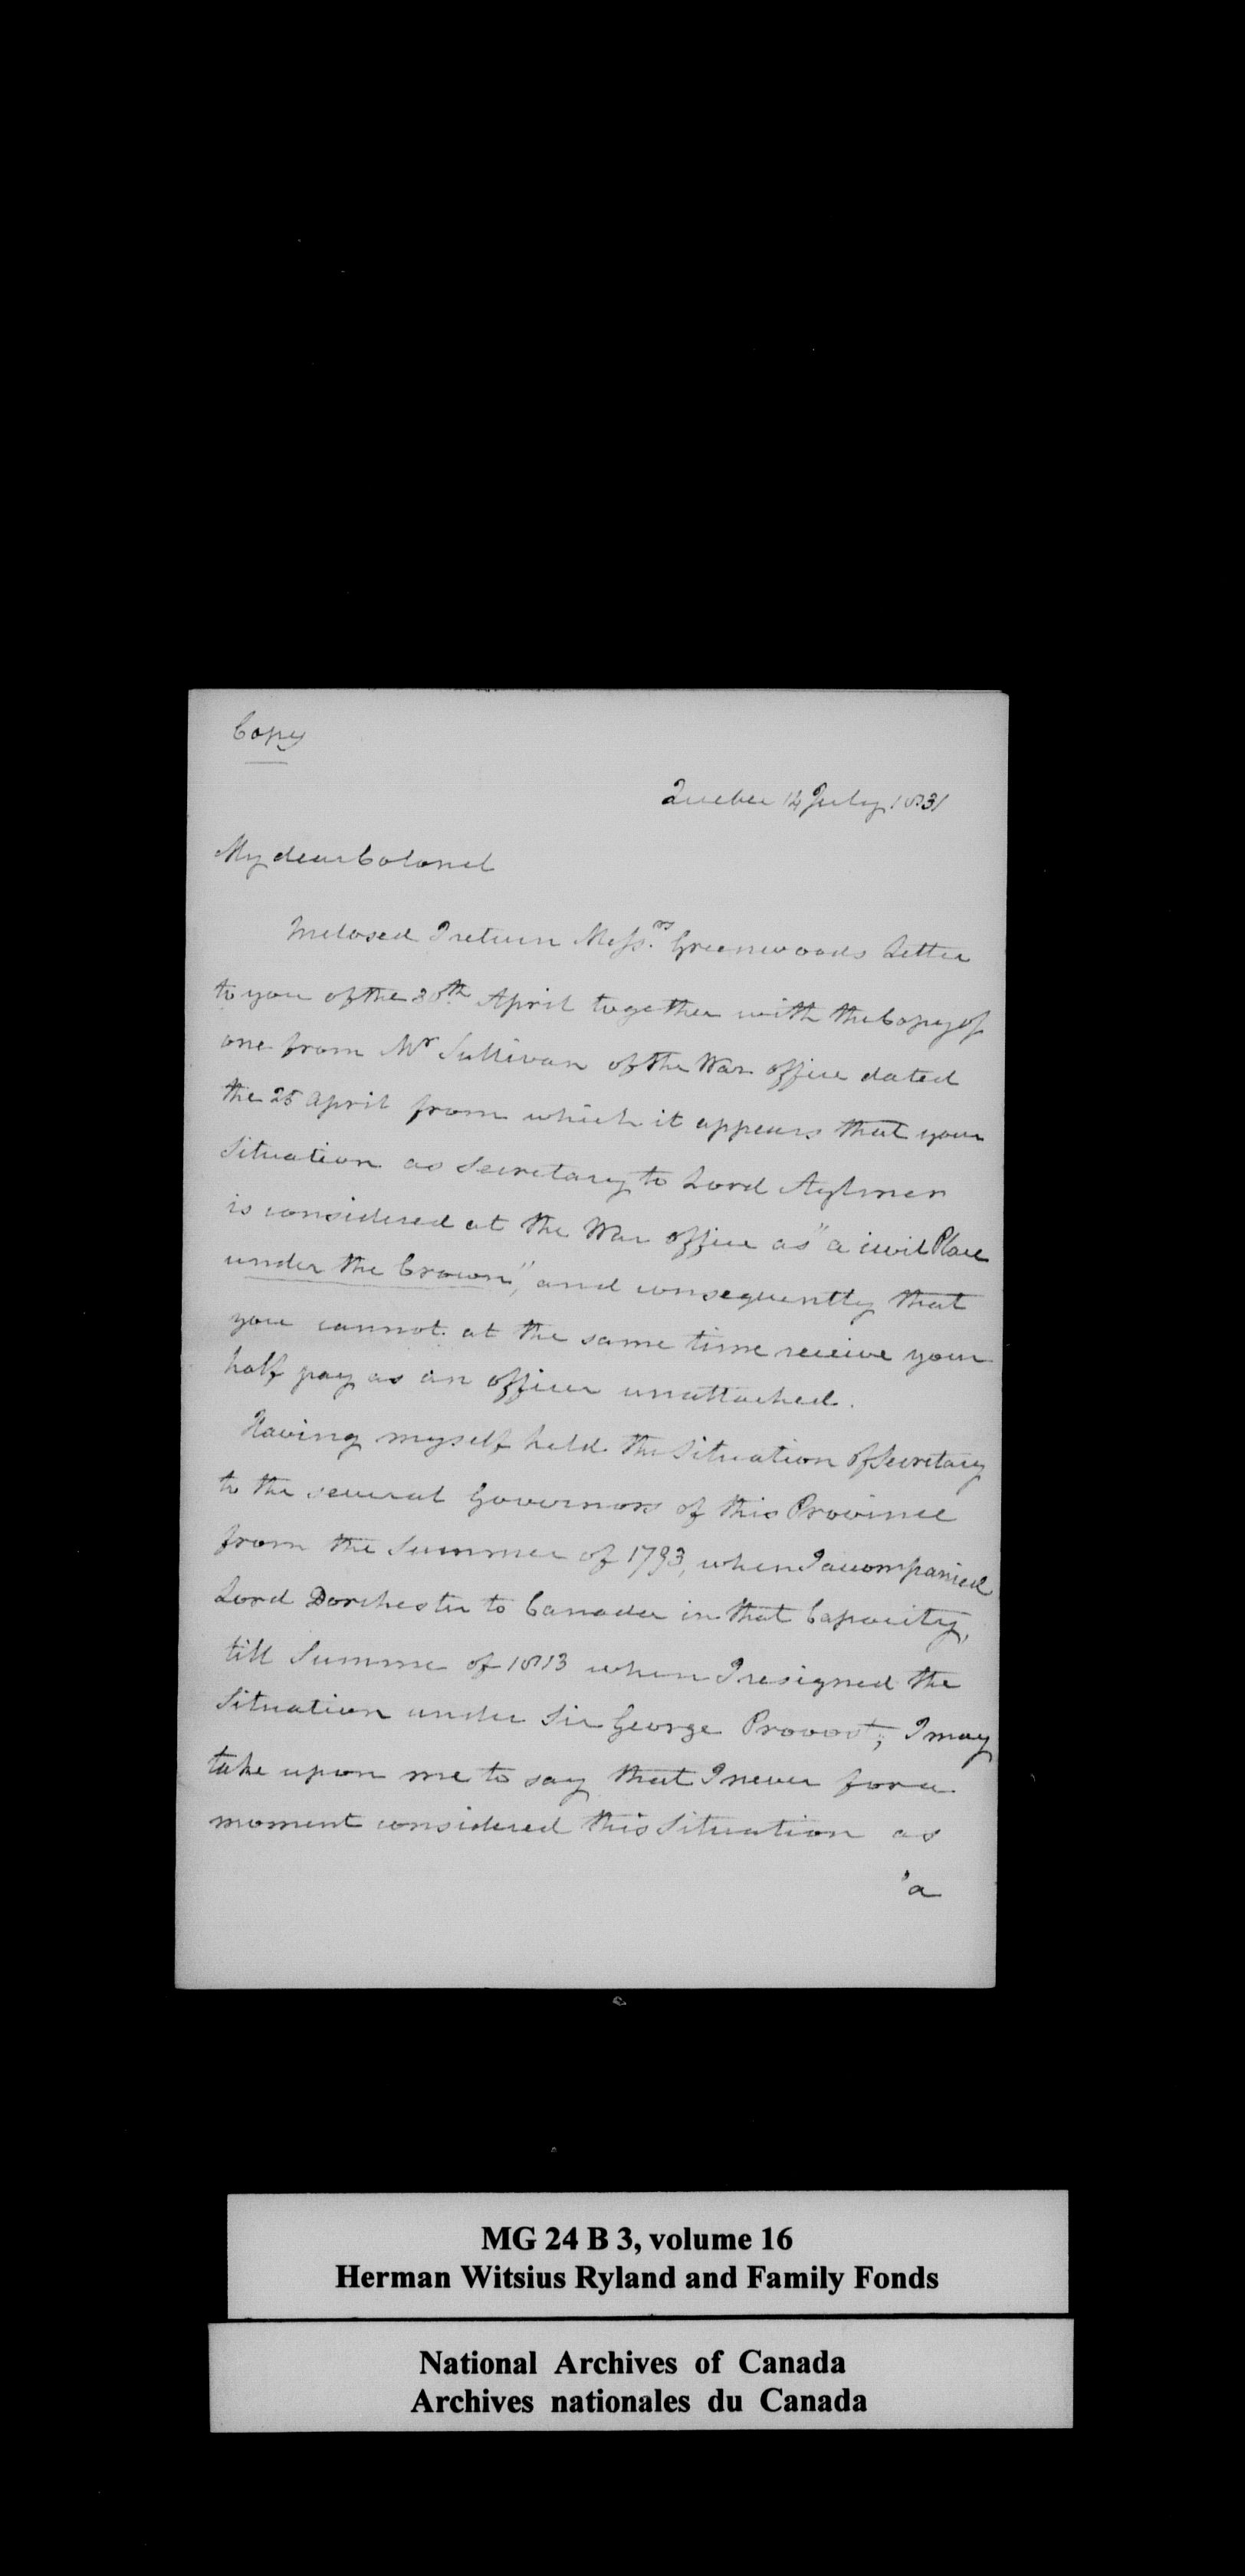 Copy
Quebec 14 July 1831
My dear Colonel
Inclosed I return Mess.rs Greenwoods Letter
to you of the 30th April together with the Copy of
one from Mr Sullivan of the War office dated
the 25 April from which it appears that your
Situation as Secretary to Lord Aylmer
is considered at the War office as "a civil Place
under the Crown", and consequently that
you cannot at the same time receive your
half pay as an officer unattached.
Having myself held the Situation of Secretary
to the several Governors of this Province
from the Summer of 1793, when I accompanied
Lord Dorchester to Canada in that Capacity,
till Summer of 1813 when I resigned the
Situation under Sir George Provost; I may
take upon me to say that I never for a
moment considered this Situation as
"a
MG 24 B 3, volume 16
Herman Witsius Ryland and Family Fonds
National Archives of Canada
Archives nationales du Canada